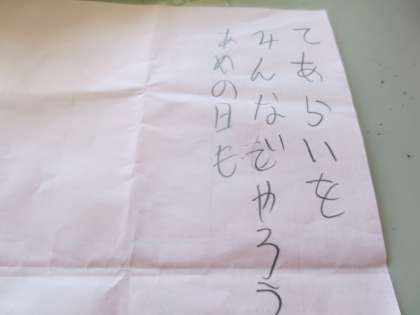 てあらいを
みんなでやろう
あめの日も